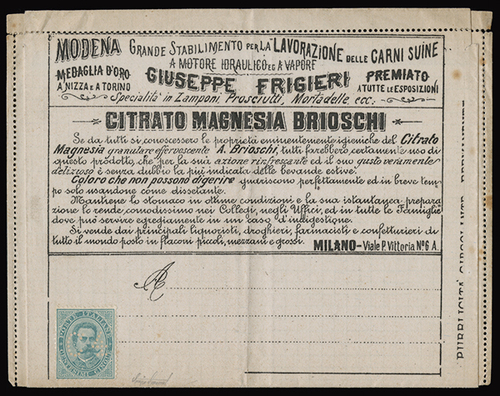 MODENA GRANDE STABILIMENTO PER LA LAVORAZIONE DELLE CARNI SUINE
A MOTORE IDRAULICO ED A VAPORE
MEDAGLIA D'ORO
A NIZZA E A TORINO
GIUSEPPE FRIGIERI
PREMIATO
A TUTTE LE ESPOSIZIONI
Specialità in Zamponi, Prosciutti, Mortadelle, ecc.
CITRATO MAGNESIA BRIOSCHI
Se da tutti si conoscessero le proprietà eminentemente igieniche del Citrato
Magnesia granulare effervescente A. Brioschi, tutti farebbero certamente uso di
questo prodotto, che per la sua azione rinfrescante ed il suo gusto veramente
delizioso è senza dubbio la più indicata delle bevande estive.
Coloro che non possono digerire guariscono perfettamente ed in breve tem-
po solo mandone come dissetante.
Mantiene lo stomaco in ottime condizioni e la sua istantanea prepara
zione lo rende comodissimo nei Collegi, negli Uffici, ed in tutte le Famiglie
dove può servire egregiamente in un caso d'indigestione.
Si vende dai principali liquoristi, droghieri, farmacisti e confetturieri di
tutto il mondo posto in flaconi piccoli, mezzani e grossi. MILANO - Viale P. Vittoria No 6 A.
A
POSTE ITALIANE
PUBBLICITÀ